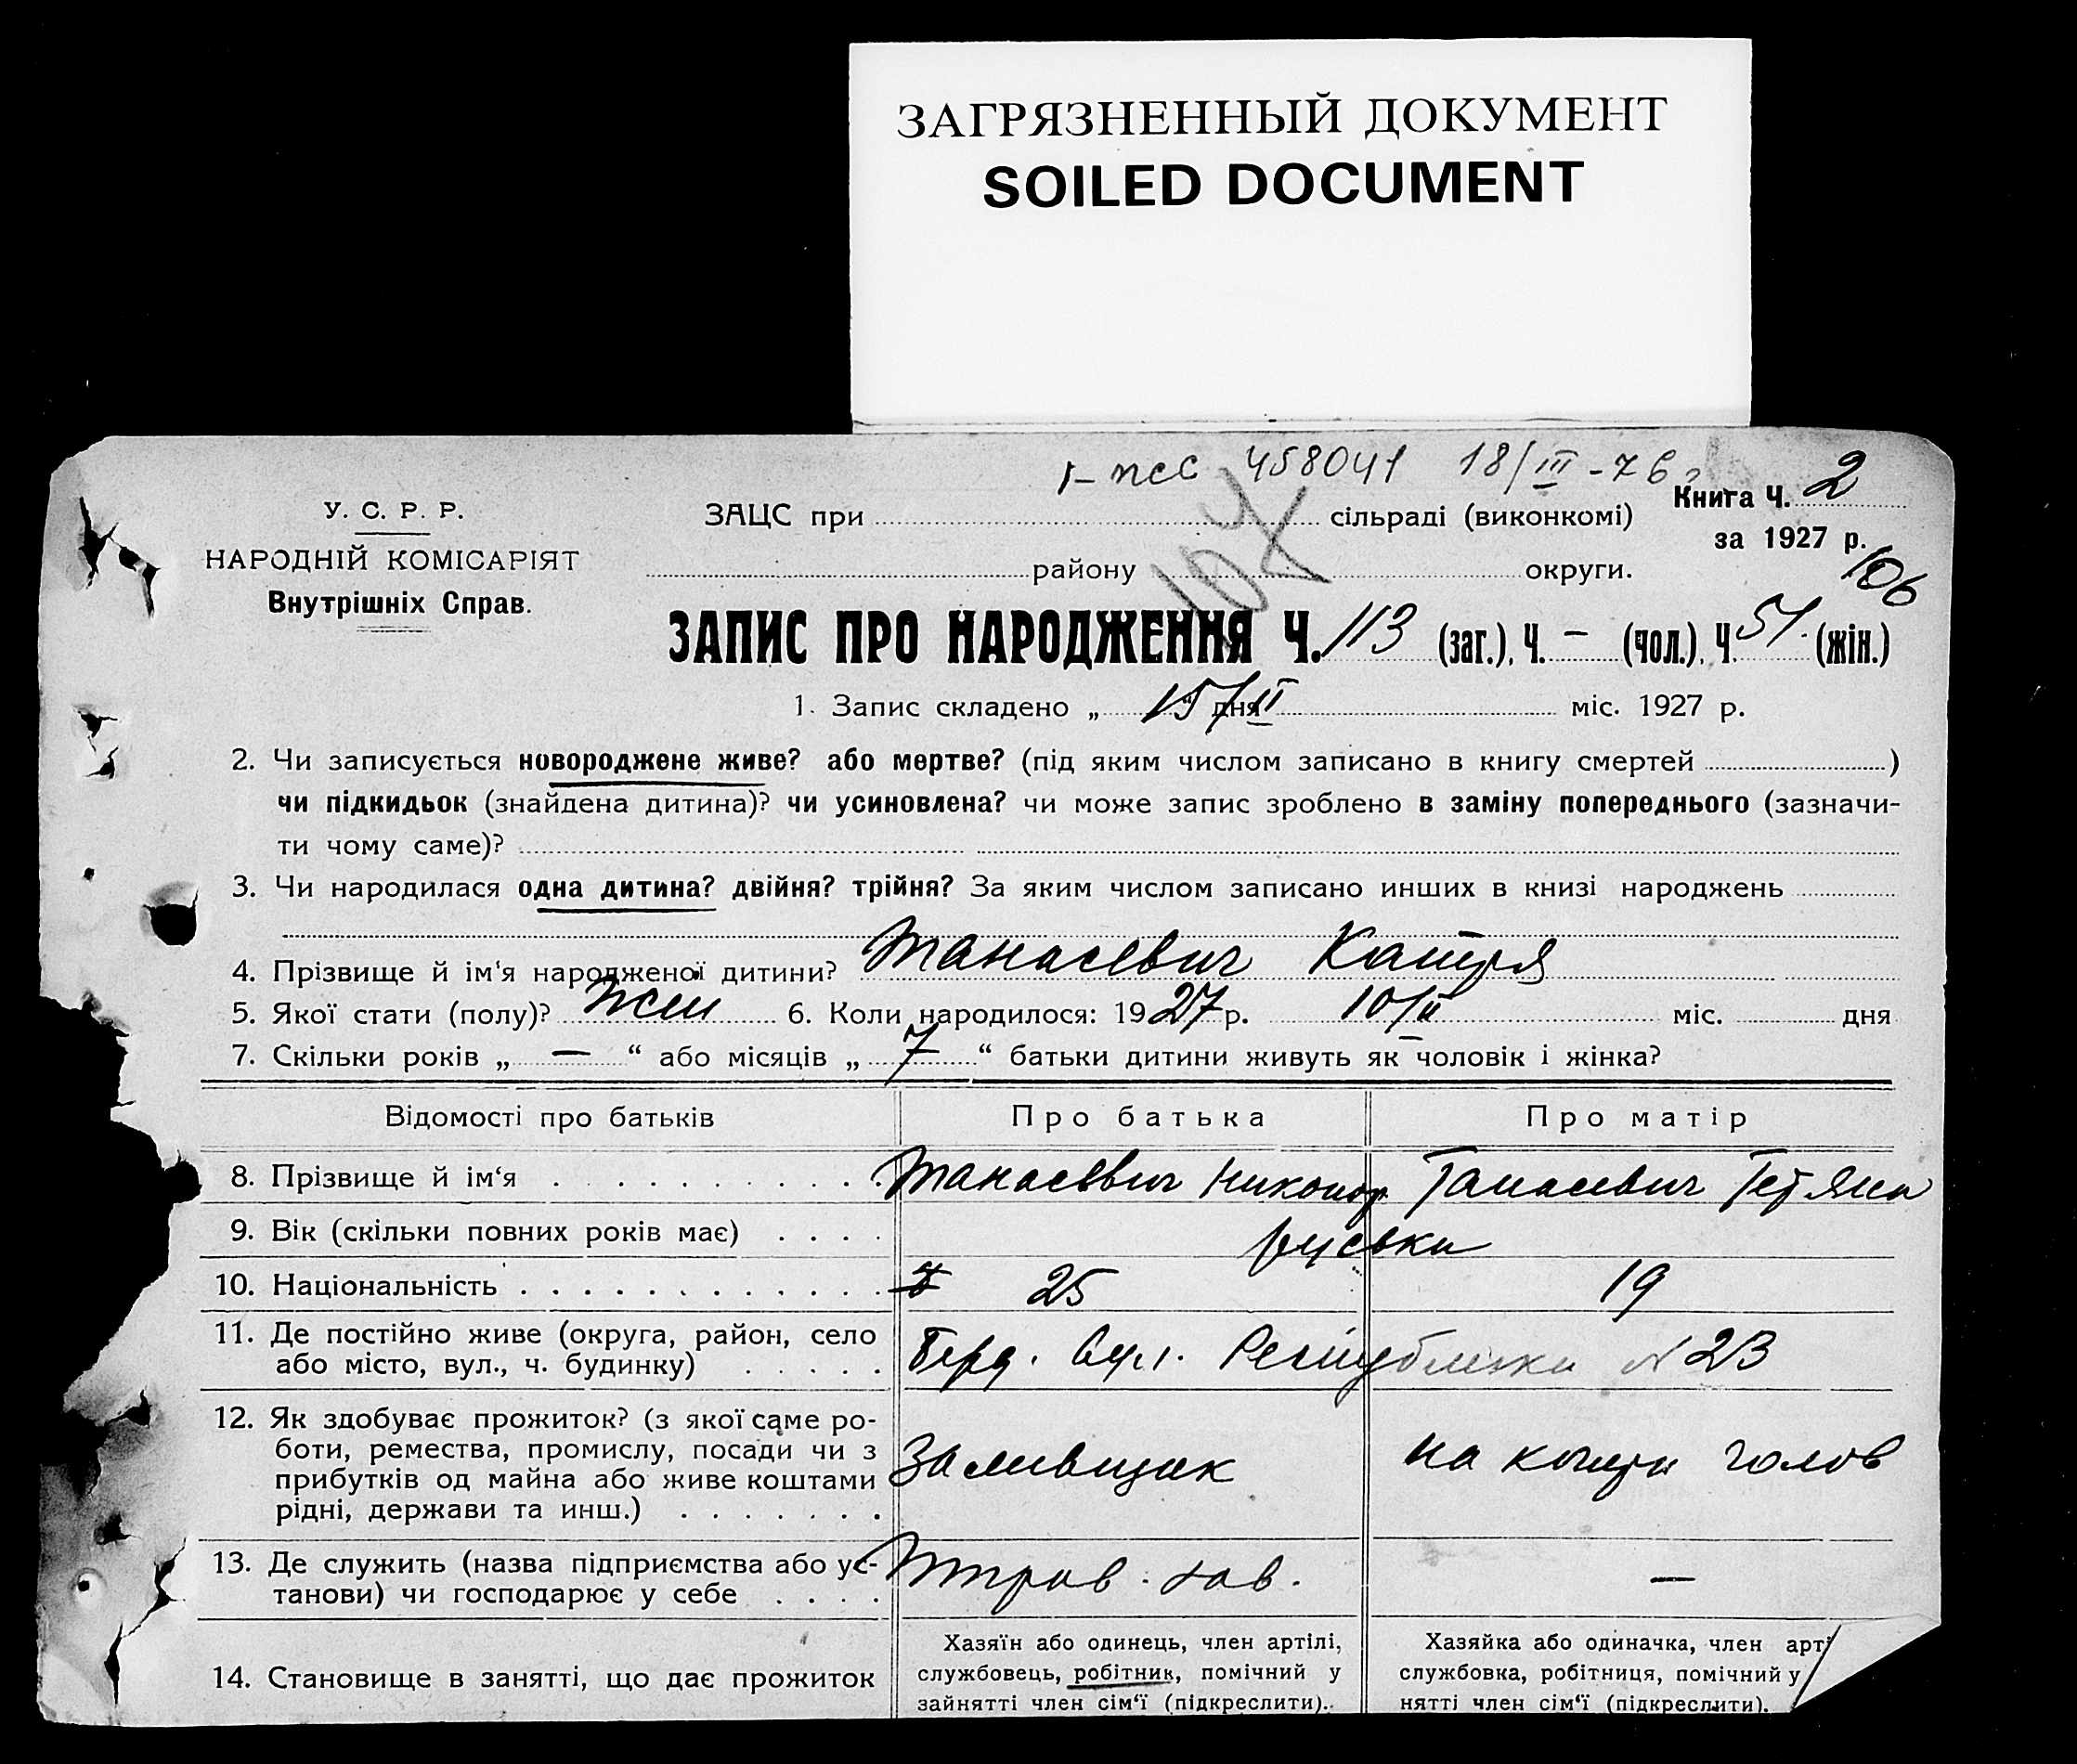 ЗАГРЯЗНЕННЫЙ ДОКУМЕНТ
SOILED DOCUMENT
458041 18/III-76
У. С. Р. Р.
НАРОДНІЙ КОМІСАРІЯТ
Внутрішніх Справ.
ЗАЦС при сільраді (виконкомі)
Книга Ч. 2
за 1927 р.
району округи.
106
107
ЗАПИС ПРО НАРОДЖЕННЯ Ч. 113 (заг.), Ч. – (чол.), Ч. 51. (жін.)
1. Запис складено „ 15/II “ дня міс. 1927 р.
2. Чи записується новороджене живе? або мертве? (під яким числом записано в книгу смертей )
чи підкидьок (знайдена дитина)? чи усиновлена? чи може запис зроблено в заміну попереднього (зазначи-
ти чому саме)?
3. Чи народилася одна дитина? двійня? трійня? За яким числом записано инших в книзі народжень
4. Прізвище й ім‘я народженої дитини? Танасевич Катря
5. Якої стати (полу)? жін 6. Коли народилося: 1927 р. 10/II міс. дня
7. Скільки років „ — “ або місяців „ 7 “ батьки дитини живуть як чоловік і жінка?
Відомості про батьків Про батька Про матір
8. Прізвище й ім‘я Танасевич Никонор Танасевич Тетяна
9. Вік (скільки повних років має) руськи
10. Національність 25 19
11. Де постійно живе (округа, район, село
або місто, вул., ч. будинку) Берд. вул. Республіки N 23
12. Як здобуває прожиток? (з якої саме ро-
боти, ремества, промислу, посади чи з
прибутків од майна або живе коштами
рідні, держави та инш.)
Заливщик на кошти голов
13. Де служить (назва підприємства або ус-
танови) чи господарює у себе зав. —
14. Становище в занятті, що дає прожиток
Хазяїн або одинець, член артілі,
службовець, робітник, помічний у
зайнятті член сім‘ї (підкреслити).
Хазяйка або одиначка, член арт
службовка, робітниця, помічний у
нятті член сім‘ї (підкреслити).